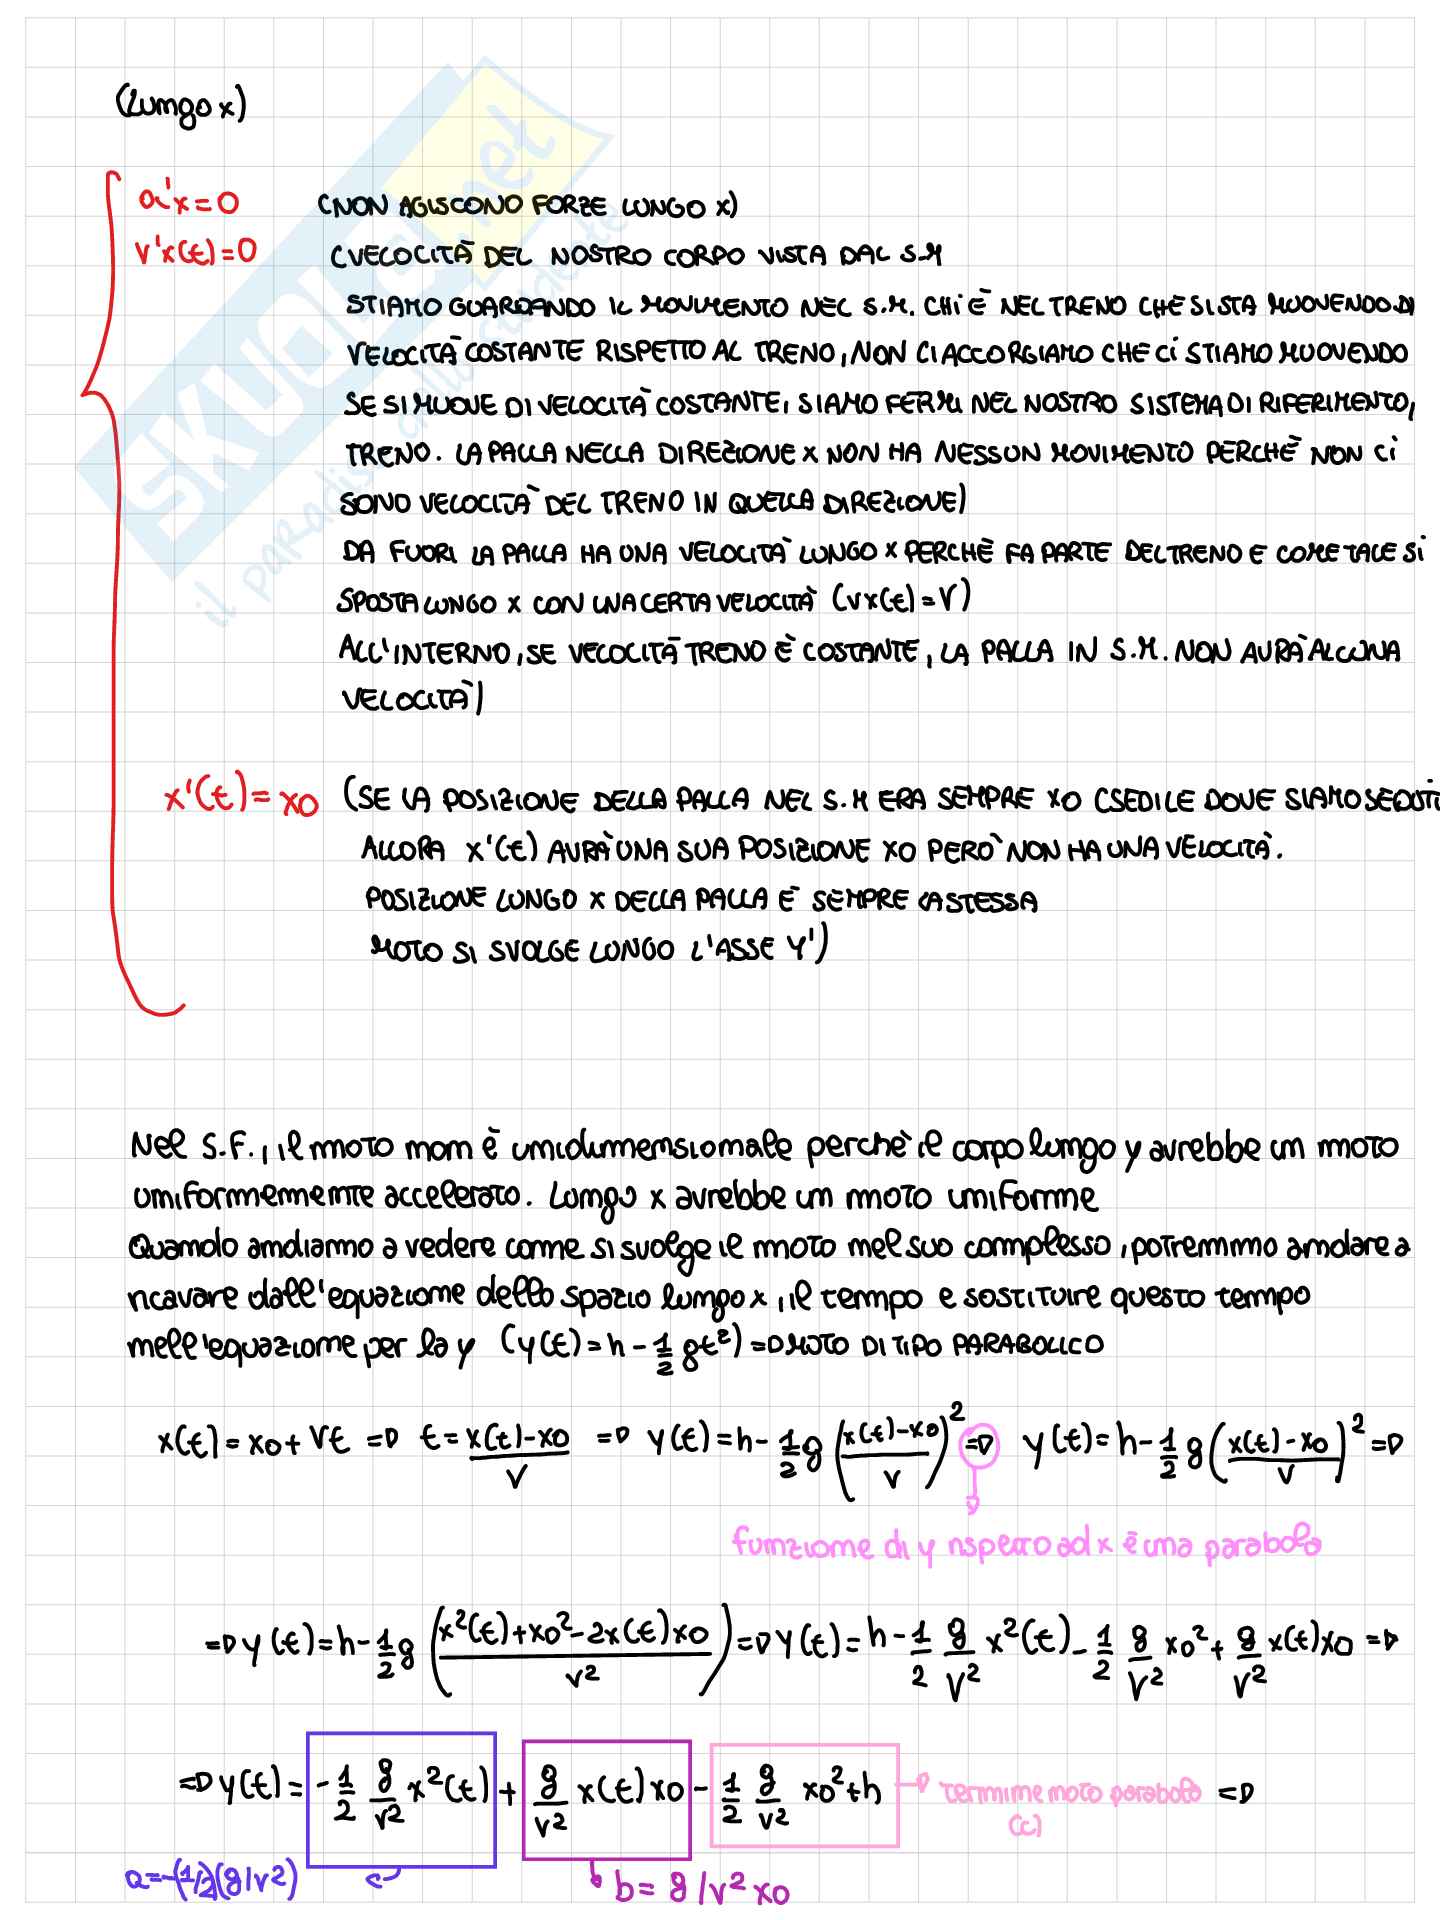 (lungo x)
a'x=0 (NON AGISCONO FORZE LUNGO x)
v'x(t)=0 (VELOCITÀ DEL NOSTRO CORPO VISTA DAL S.M
STIAMO GUARDANDO IL MOVIMENTO NEL S.M. CHI È NEL TRENO CHE SI STA MUOVENDO DI
VELOCITÀ COSTANTE RISPETTO AL TRENO, NON CI ACCORGIAMO CHE CI STIAMO MUOVENDO
SE SI MUOVE DI VELOCITÀ COSTANTE, SIAMO FERMI NEL NOSTRO SISTEMA DI RIFERIMENTO,
TRENO. LA PALLA NELLA DIREZIONE x NON HA NESSUN MOVIMENTO PERCHÈ NON CI
SONO VELOCITÀ DEL TRENO IN QUELLA DIREZIONE)
DA FUORI LA PALLA HA UNA VELOCITÀ LUNGO x PERCHÈ FA PARTE DEL TRENO E COME TALE SI
SPOSTA LUNGO x CON UNA CERTA VELOCITÀ (vx(t)=V)
ALL'INTERNO, SE VELOCITÀ TRENO È COSTANTE, LA PALLA IN S.M. NON AVRÀ ALCUNA
VELOCITÀ)
x'(t)=x0 (SE LA POSIZIONE DELLA PALLA NEL S.M ERA SEMPRE x0 (SEDILE DOVE SIAMO SEDUTI
ALLORA x'(t) AVRÀ UNA SUA POSIZIONE x0 PERÒ NON HA UNA VELOCITÀ.
POSIZIONE LUNGO x DELLA PALLA È SEMPRE LA STESSA
MOTO SI SVOLGE LUNGO L'ASSE Y')
Nel S.F., il moto non è unidimensionale perchè il corpo lungo y avrebbe un moto
uniformemente accelerato. Lungo x avrebbe un moto uniforme
Quando andiamo a vedere come si svolge il moto nel suo complesso, potremmo andare a
ricavare dall'equazione dello spazio lungo x, il tempo e sostituire questo tempo
nell'equazione per la y (y(t)=h-1/2 gt²) => MOTO DI TIPO PARABOLICO
x(t)=x0+Vt => t=(x(t)-x0)/V => y(t)=h-1/2 g((x(t)-x0)/V)² => y(t)=h-1/2 g((x(t)-x0)/V)² =>
funzione di y rispetto ad x è una parabola
=> y(t)=h-1/2 g((x²(t)+x0²-2x(t)x0)/V²) => y(t)=h-1/2 g/V² x²(t)-1/2 g/V² x0²+g/V² x(t)x0 =>
=> y(t)=-1/2 g/V² x²(t)+g/V² x(t)x0-1/2 g/V² x0²+h → termine moto parabola =>
(c)
a=-(1/2)(g/v²) b=g/v² x0
SKUOLA.net
il paradiso dello studente